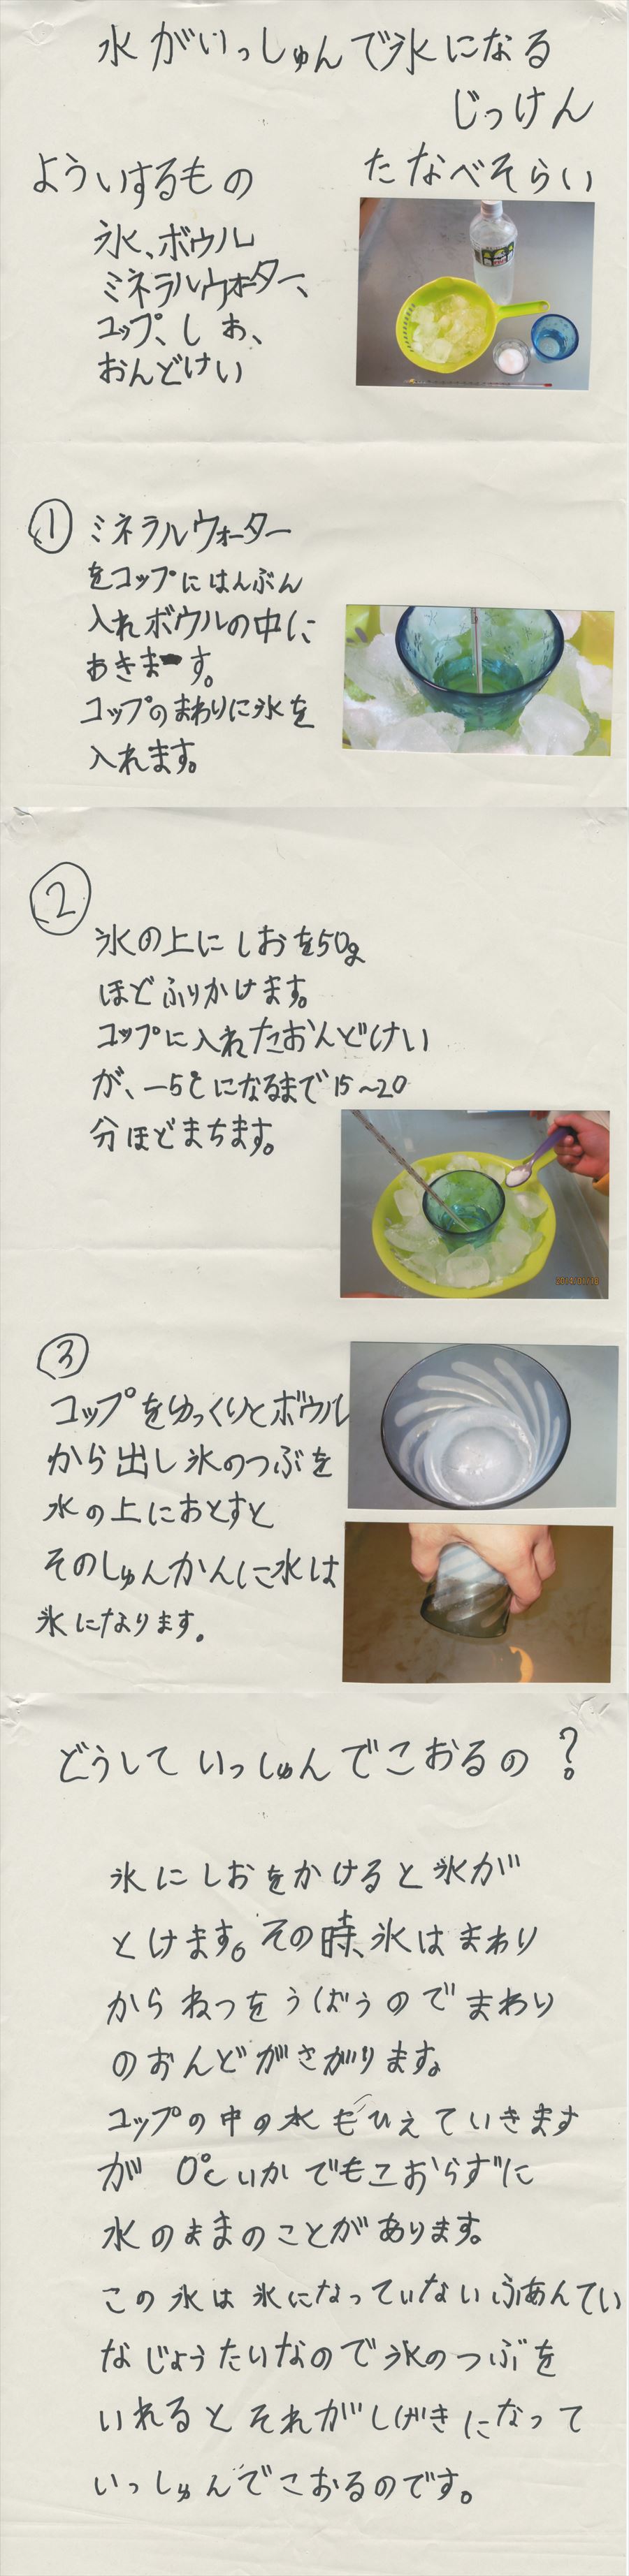 水がいっしゅんで氷になる
じっけん
たなべそらい
よういするもの
氷、ボウル
ミネラルウォーター、
コップ、しお、
おんどけい
① ミネラルウォーター
をコップにはんぶん
入れボウルの中に
おきます。
コップのまわりに氷を
入れます。
②
氷の上にしおを50g
ほどふりかけます。
コップに入れたおんどけい
が、-5℃になるまで15~20
分ほどまちます。
③
コップをゆっくりとボウル
から出し氷のつぶを
水の上におとすと
そのしゅんかんに水は
氷になります。
どうしていっしゅんでこおるの?
氷にしおをかけると氷が
とけます。その時、氷はまわり
からねつをうばうのでまわり
のおんどがさがります。
コップの中の水もひえていきます
が 0℃いかでもこおらずに
水のままのことがあります。
この氷は氷になっていないふあんてい
なじょうたいなので氷のつぶを
いれるとそれがしげきになって
いっしゅんでこおるのです。